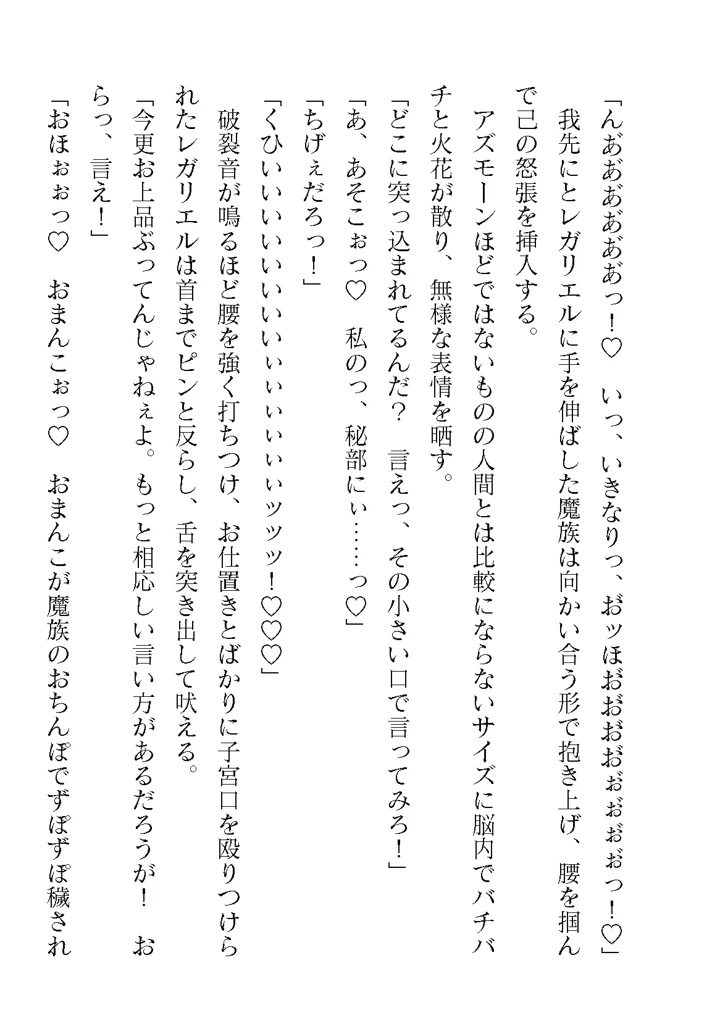 「んあ゛あ゛あ゛あ゛あ゛っ！♡　いっ、いきなりっ、お゛ッほお゛お゛お゛お゛ぉ゛ぉ゛ぉ゛ぉ゛っ！♡」
　我先にとレガリエルに手を伸ばした魔族は向かい合う形で抱き上げ、腰を掴ん
で己の怒張を挿入する。
　アズモーンほどではないものの人間とは比較にならないサイズに脳内でバチバ
チと火花が散り、無様な表情を晒す。
「どこに突っ込まれてるんだ？　言えっ、その小さい口で言ってみろ！」
「あ、あそこぉっ♡　私のっ、秘部にぃ……っ♡」
「ちげぇだろっ！」
「くひぃいいいいいいいいぃぃぃぃぃぃッッッ！♡♡♡」
　破裂音が鳴るほど腰を強く打ちつけ、お仕置きとばかりに子宮口を殴りつけら
れたレガリエルは首までピンと反らし、舌を突き出して吠える。
「今更お上品ぶってんじゃねぇよ。もっと相応しい言い方があるだろうが！　お
らっ、言え！」
「おほぉぉっ♡　おまんこぉっ♡　おまんこが魔族のおちんぽでずぽずぽ穢され